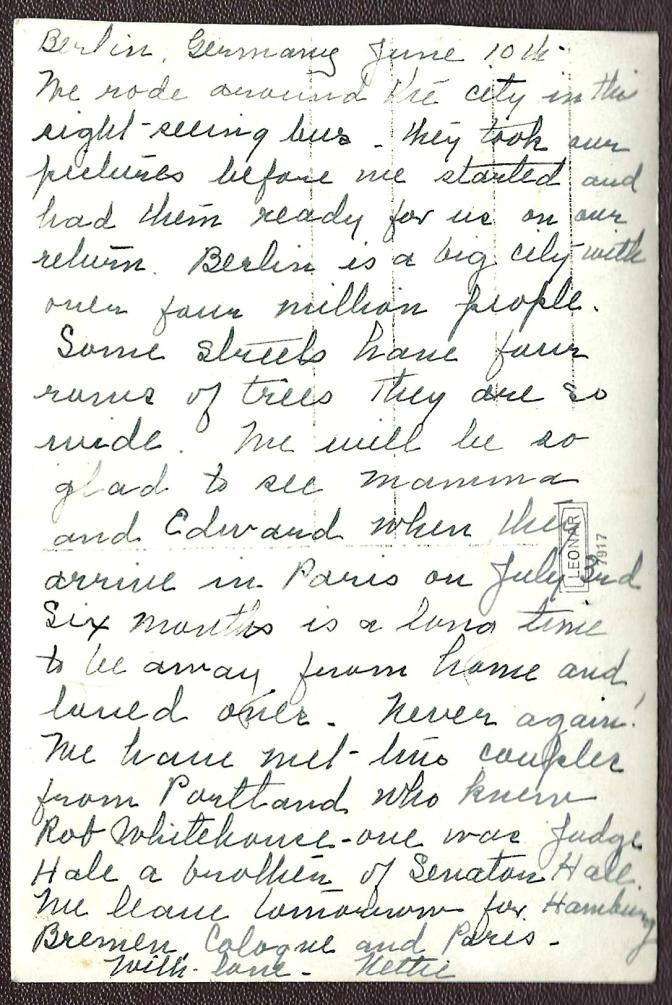 Berlin, Germany June 10th-
We rode around the city in this
sight-seeing bus - they took our
pictures before we started and
had them ready for us on our
return. Berlin is a big city with
over four million people.
Some streets have four
rows of trees They are so
wide. We will be so
glad to see mamma
and Edward when they
arrive in Paris on July 3rd
Six months is a long time
to be away from home and
loved ones. Never again!
We have met two couples
from Portland who knew
Rob Whitehouse - one was Judge
Hale a brother of Senator Hale.
We leave tomorrow for Hamburg
Bremen, Cologne and Paris -
With love - Nettie
LEONAR
7917